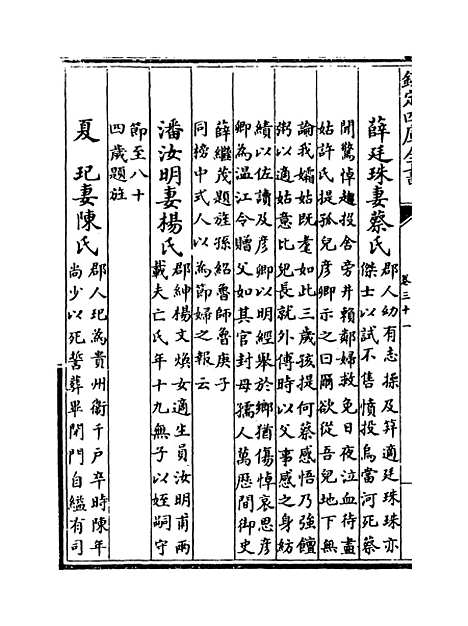 欽定四庫全書
卷三十一
薛廷珠妻蔡氏
郡人幼有志操及笄適廷珠珠亦
傑士以試不售憤投烏當河死蔡
聞驚悼趨投舍旁井賴鄰婦救免日夜泣血待盡
姑許氏提孤兒彥卿示之曰爾欲從吾兒地下無
論我孀姑既耄如此三歲孩提何蔡感悟乃強饘
粥以適姑意比兒長就外傅時以父事感之身紡
績以佐讀及彥卿以明經舉於鄉猶傷悼哀思彥
卿為温江令贈父如其官封母孺人萬歴間御史
薛繼茂題旌孫紹魯師魯庚子
同榜中式人以為節婦之報云
潘汝明妻楊氏
郡紳楊文煥女適生員汝明甫兩
載夫亡氏年十九無子以姪嗣守
節至八十
四歲題旌
夏𤣱妻陳氏
郡人𤣱為貴州衛千戸卒時陳年
尚少以死誓葬畢閉門自縊有司